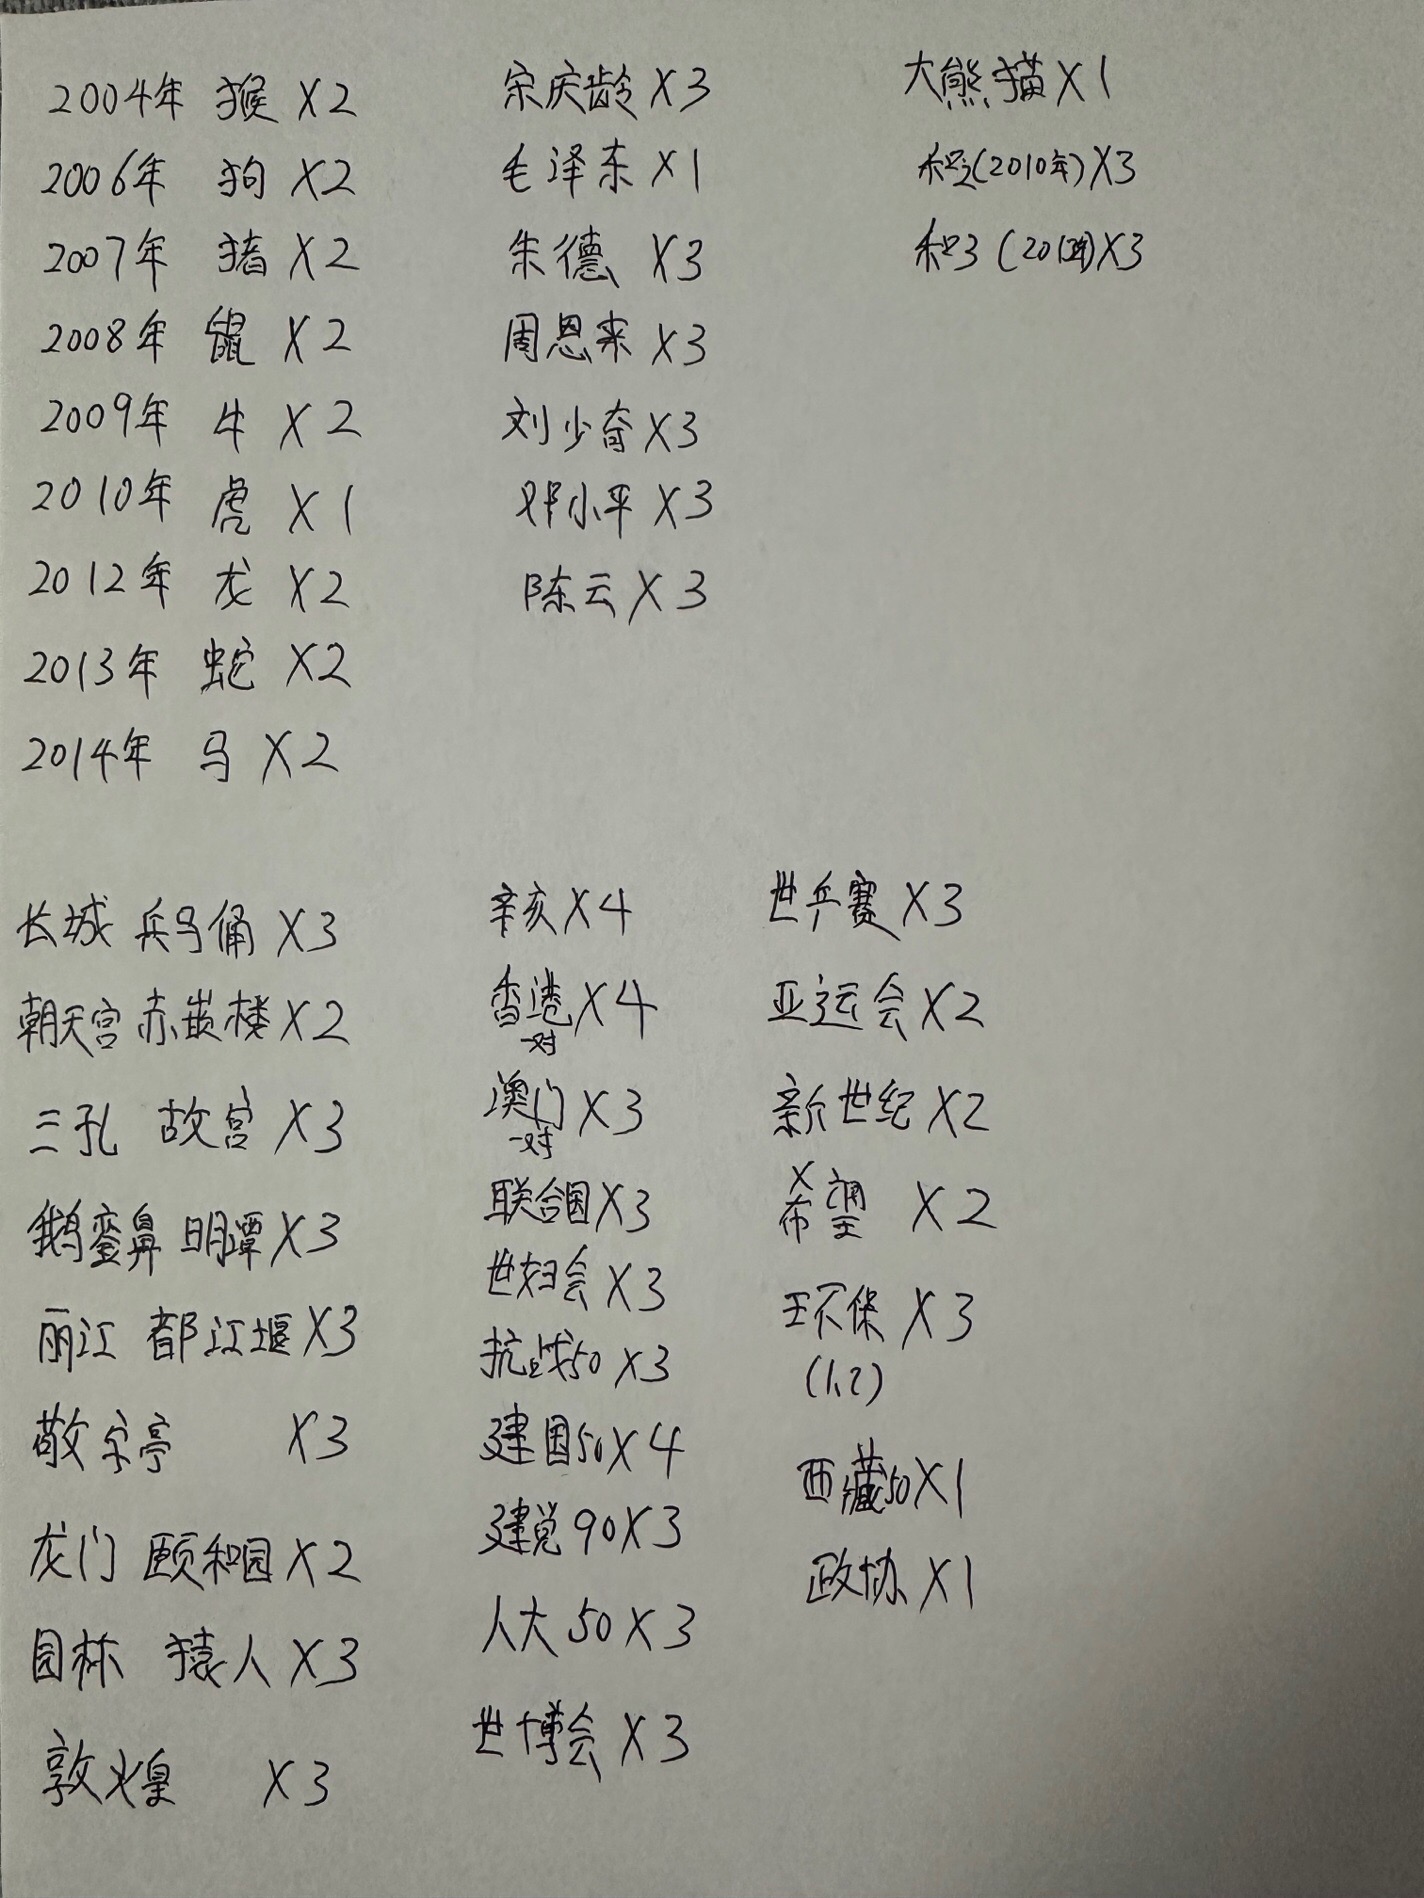 2004年 猴 X2
2006年 狗 X2
2007年 猪 X2
2008年 鼠 X2
2009年 牛 X2
2010年 虎 X1
2012年 龙 X2
2013年 蛇 X2
2014年 马 X2
宋庆龄 X3
毛泽东 X1
朱德 X3
周恩来 X3
刘少奇 X3
邓小平 X3
陈云 X3
大熊猫 X1
和2(2010年)X3
和3(2013年)X3
长城 兵马俑 X3
朝天宫 赤嵌楼 X2
三孔 故宫 X3
鹅銮鼻 日月潭 X3
丽江 都江堰 X3
敬字亭 X3
龙门 颐和园 X2
园林 猿人 X3
敦煌 X3
辛亥 X4
香港 X4
一对
澳门 X3
一对
联合国 X3
世妇会 X3
抗战50 X3
建国50 X4
建党90 X3
人大50 X3
世博会 X3
世乒赛 X3
亚运会 X2
新世纪 X2
希望 X2
环保 X3
(1、2)
西藏50 X1
政协 X1